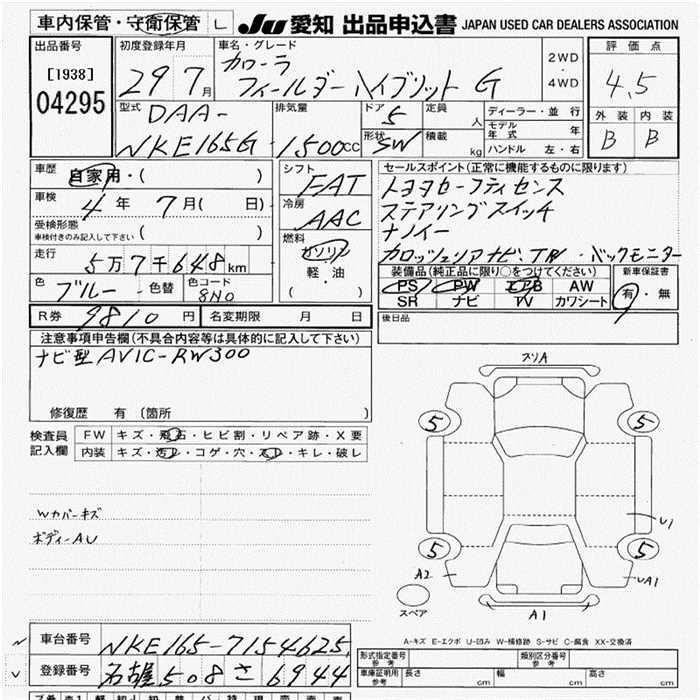 車内保管・守衛保管 L JU 愛知 出品申込書 JAPAN USED CAR DEALERS ASSOCIATION
出品番号
[1938]
04295
初度登録年月
29 7月
車名・グレード
カローラ
フィールダーハイブリット G
2WD
・
4WD
評価点
4.5
外装 内装
B B
型式 DAA-
NKE165G
排気量
1500cc
ドア 5
形状 SW
定員 人
積載 kg
ディーラー・並行
モデル年式 年
ハンドル 左・右
車歴 自家用・( )
車検 4年 7月( 日)
受検形態
車検付きのみ記入して下さい ( )
走行 5万7千648km
色 ブルー 色替 色コード 8N0
シフト FAT
冷房 AAC
燃料
ガソリン
軽・油
( )
セールスポイント(正常に機能するものに限ります)
トヨタセーフティセンス
ステアリングスイッチ
ナノイー
カロッツェリアナビ、TV・バックモニター
装備品(純正品に限り○をつけてください)
PS PW エアB AW
SR ナビ TV カワシート
新車保証書
有・無
R券 9810円 名変期限 月 日
後日品
注意事項申告欄(不具合内容等は具体的に記入して下さい)
ナビ型AVIC-RW300
修復歴 有(箇所 )
検査員記入欄
FW キズ・飛石・ヒビ割・リペア跡・X要
内装 キズ・汚レ・コゲ・穴・スレ・キレ・破レ
Wカバーキズ
ボディーAU
スリA
5 5
U1
5 5
A2 UA1
スペア
A1
A-キズ E-エクボ U-凹み W-補修跡 S-サビ C-腐食 XX-交換済
車台番号 NKE165-7154625
登録番号 名雄508さ6944
形式指定番号 参考
類別区分番号 参考
車庫証明用 参考 長さ cm 幅 cm 高さ cm